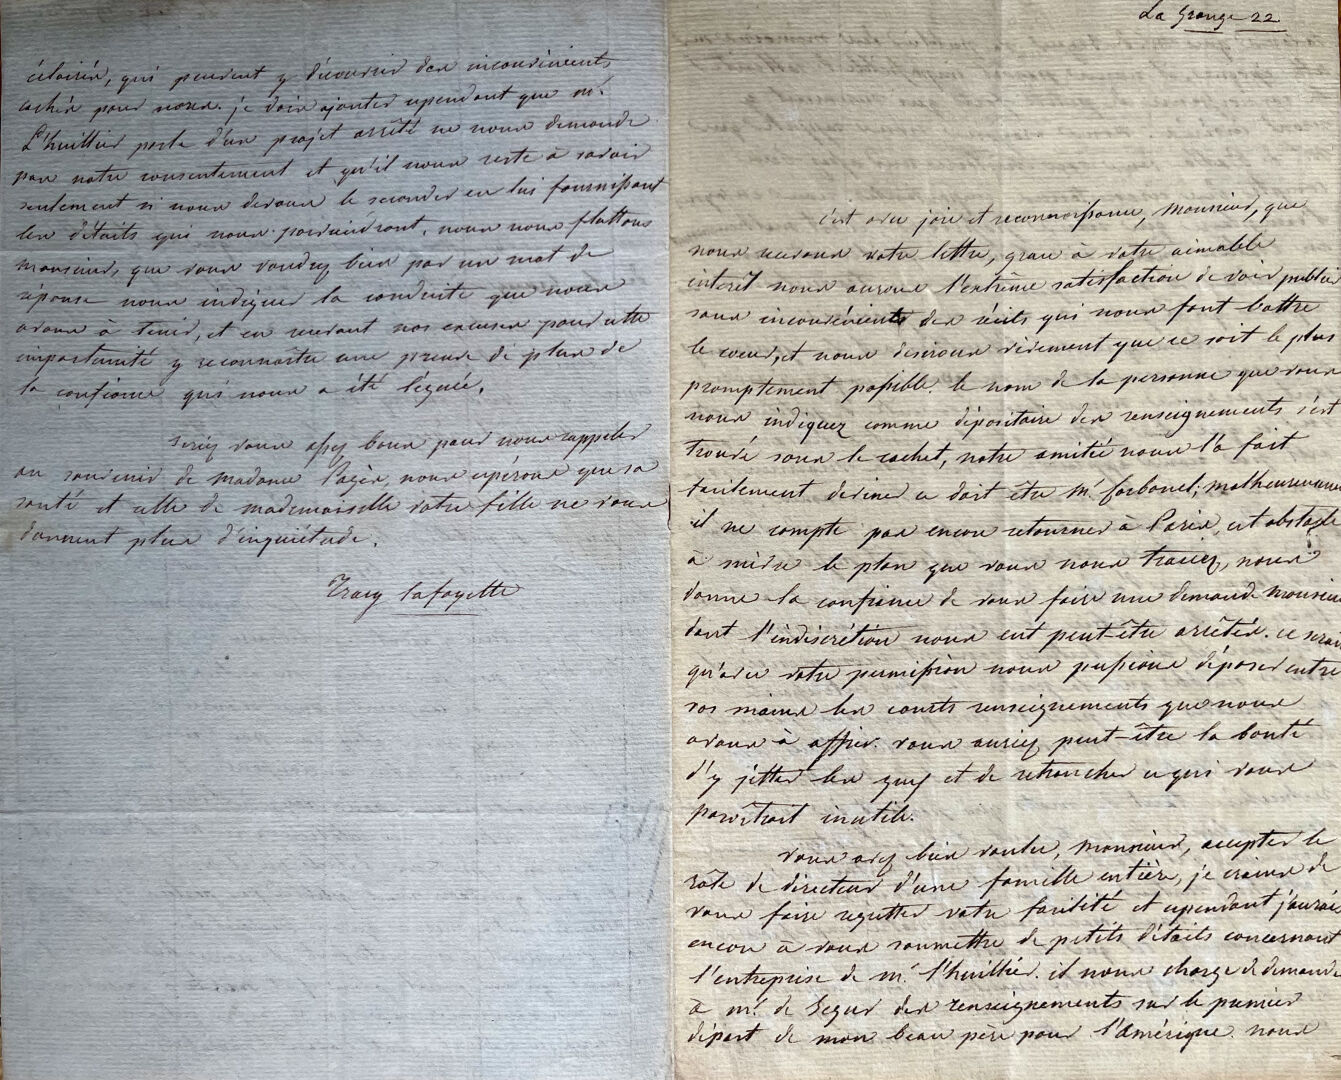 La Grange 22
c'est avec joie et reconnoissance, Monsieur, que
nous recevons votre lettre, grace à votre aimable
interêt nous aurons l'extrême satisfaction de voir publier
sans inconvénients des récits qui nous font battre
le coeur, et nous desirons vivement que ce soit le plus
promptement possible. le nom de la personne que vous
nous indiquez comme dépositaire des renseignements s'est
trouvé sous le cachet, notre amitié nous l'a fait
facilement deviner ce doit être Mr. Corbonel; malheureusement
il ne compte pas encore retourner à Paris, cet obstacle
à suivre le plan que vous nous traciez, nous
donne la confiance de vous faire une demande Monsieur
dont l'indiscrétion nous eut peut-être arrêtés. ce serait
qu'avec votre permission nous pussions déposer entre
vos mains les courts renseignements que nous
avons à offrir. vous auriez peut-être la bonté
d'y jetter les yeux et de retrancher ce qui vous
paroîtroit inutile.
Vous avez bien voulu, Monsieur, accepter le
rôle de directeur d'une famille entière, je crains de
vous faire regretter votre facilité et cependant j'aurai
encore à vous soumettre de petits détails concernant
l'entreprise de mr. l'huillier. il nous charge de demander
à mr. de Segur des renseignements sur le premier
départ de mon beau père pour l'Amérique. nous
éclairés, qui peuvent y découvrir des inconvénients
cachés pour nous. je dois ajouter cependant que mr.
L'huillier parle d'un projet arrêté ne nous demande
pas notre consentement et qu'il nous reste à savoir
seulement si nous devons le seconder en lui fournissant
les détails qui nous parviendront. nous nous flattons
monsieur, que vous voudrez bien par un mot de
réponse nous indiquer la conduite que nous
avons à tenir, et en recevant nos excuses pour cette
importunité y reconnoitre une preuve de plus de
la confiance qui nous a été léguée.
seriez vous assez bon pour nous rappeler
au souvenir de madame Pagès, nous espérons que sa
santé et celle de mademoiselle votre fille ne vous
donnent plus d'inquiétude.
Tracy Lafayette